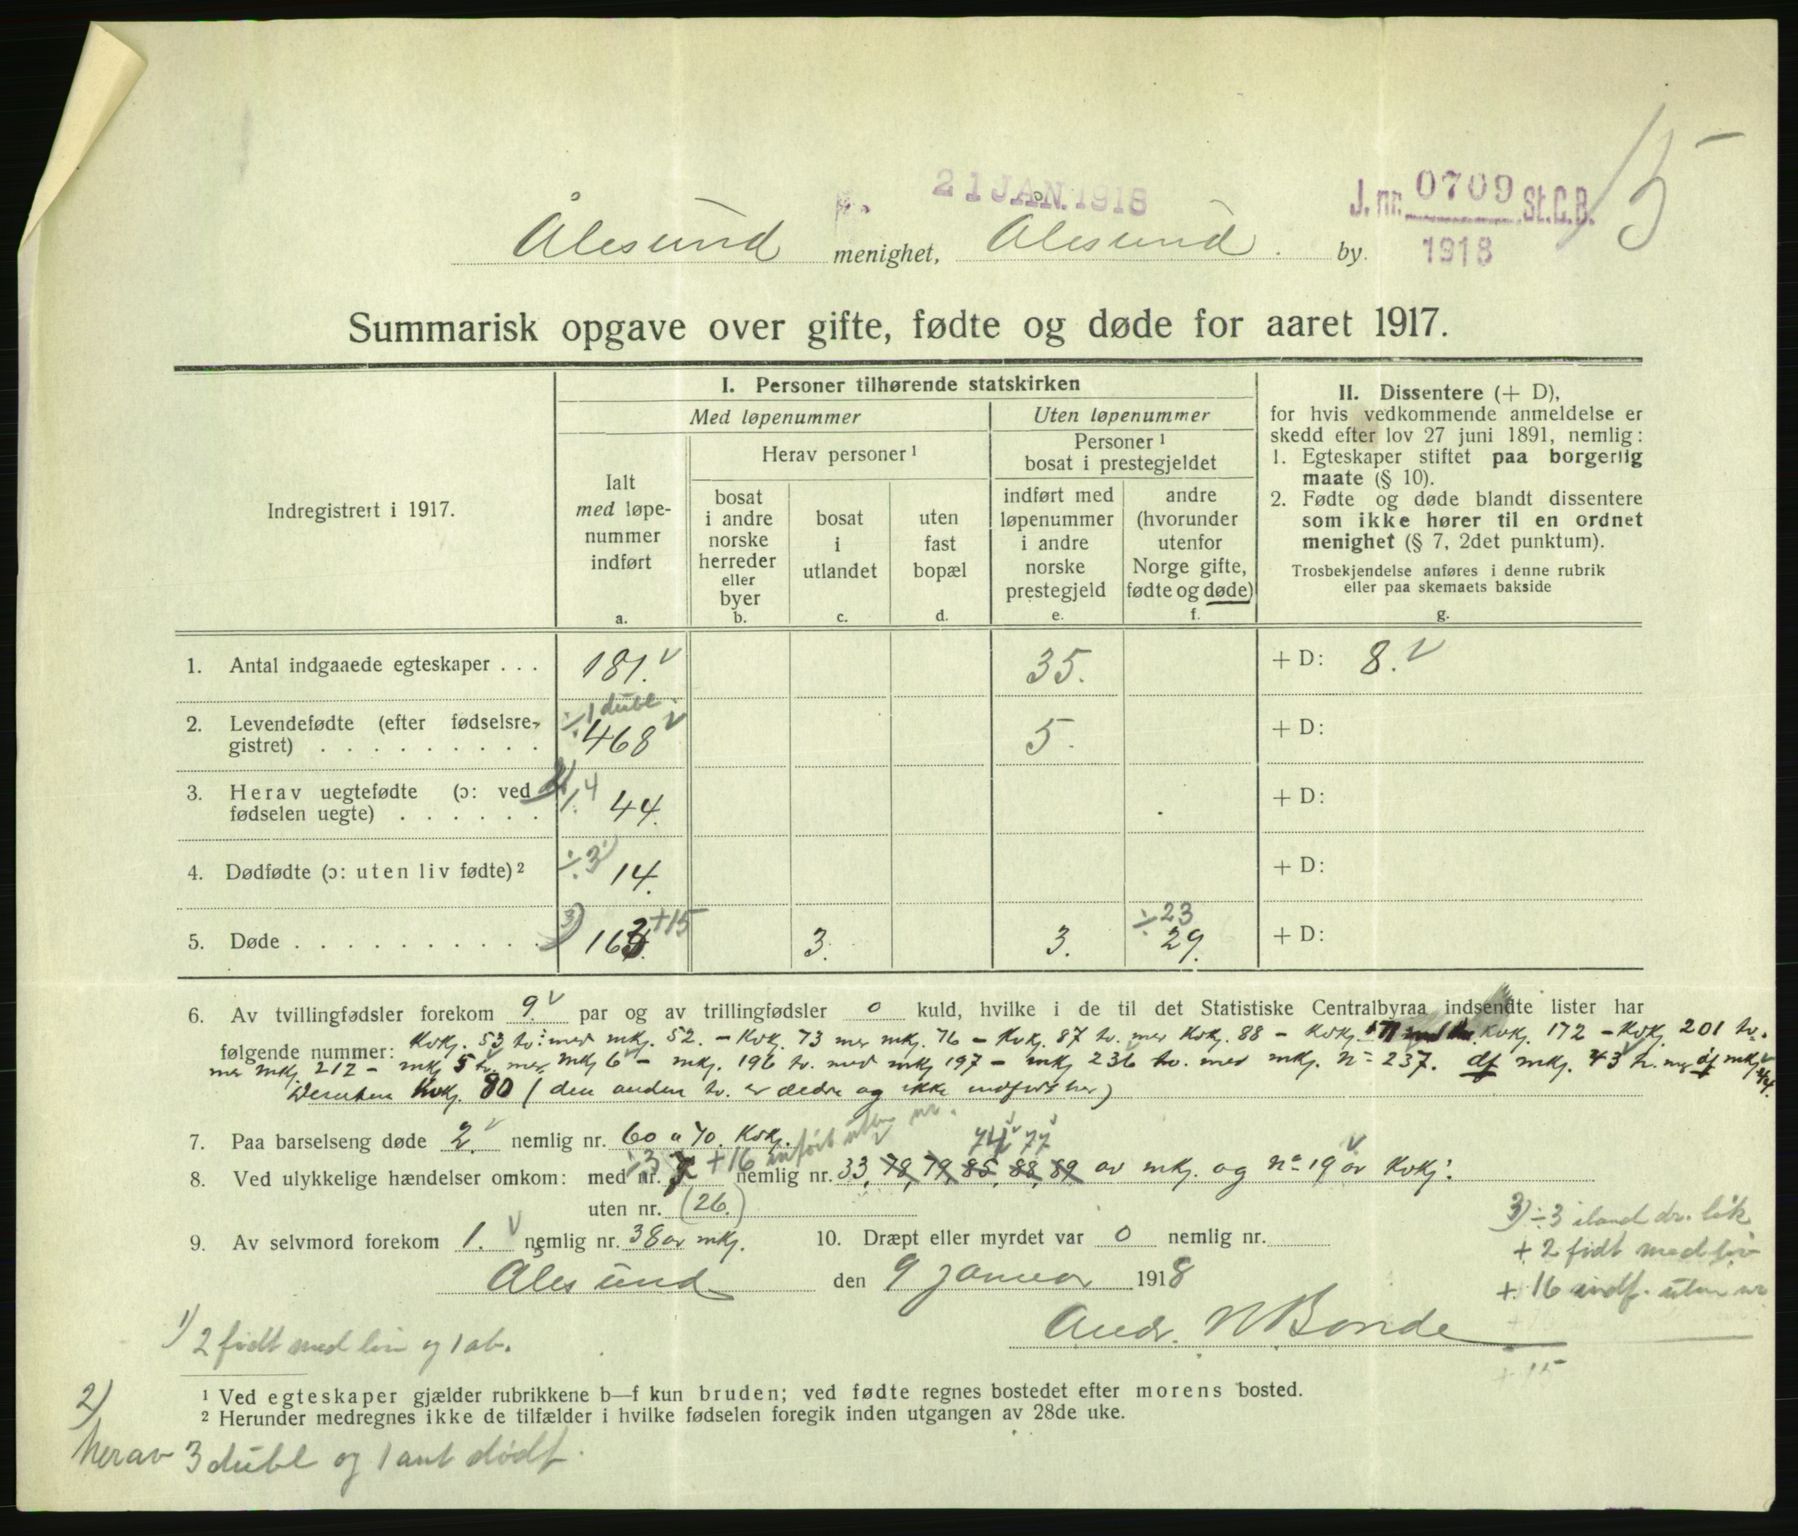 21 JAN. 1918
J. nr. 0709 St.C.B.
1918
15
Ålesund menighet, Ålesund. by.
Summarisk opgave over gifte, fødte og døde for aaret 1917.
Indregistrert i 1917.
I. Personer tilhørende statskirken
Med løpenummer
Uten løpenummer
Ialt
med løpe-
nummer
indført
a.
Herav personer ¹
bosat
i andre
norske
herreder
eller
byer
b.
bosat
i
utlandet
c.
uten
fast
bopæl
d.
Personer ¹
bosat i prestegjeldet
indført med
løpenummer
i andre
norske
prestegjeld
e.
andre
(hvorunder
utenfor
Norge gifte,
fødte og døde)
f.
II. Dissentere (+ D),
for hvis vedkommende anmeldelse er
skedd efter lov 27 juni 1891, nemlig:
1. Egteskaper stiftet paa borgerlig
maate (§ 10).
2. Fødte og døde blandt dissentere
som ikke hører til en ordnet
menighet (§ 7, 2det punktum).
Trosbekjendelse anføres i denne rubrik
eller paa skemaets bakside
g.
1. Antal indgaaede egteskaper . . . 181. 35. + D: 8.
÷ 1 dubl.
2. Levendefødte (efter fødselsre-
gistret) . . . . . . . . . 468 5. + D:
3. Herav uegtefødte (ɔ: ved 2) ÷ 4
fødselen uegte) . . . . . . 44. + D:
÷ 3 1)
4. Dødfødte (ɔ: uten liv fødte) ² 14. + D:
3) +15 ÷ 23
5. Døde . . . . . . . . . . 163. 3. 3. 29. + D:
6. Av tvillingfødsler forekom 9. par og av trillingfødsler 0 kuld, hvilke i de til det Statistiske Centralbyraa indsendte lister har
følgende nummer: Kvkj. 53 tv. med mkj. 52. – Kvkj. 73 mer mkj. 76 – Kvkj. 87 tv. mer Kvkj. 88 – Kvkj. 171 med Kvkj. 172 – Kvkj. 201 tv.
mer mkj. 212 – mkj 5 tv. mer mkj 6 – mkj. 196 tv. med mkj 197 – mkj 236 tv. med mkj. nº 237. df mkj. 43 tv. mer df mkj. 44.
Desuten Kvkj. 80 (den anden tv. er dødfø og ikke indført her)
7. Paa barselseng døde 2. nemlig nr. 60 o 70. Kvkj.
÷3 +16 indført uten nr. 74 77
8. Ved ulykkelige hændelser omkom: med nr. 7 nemlig nr. 33, 78, 79, 85, 88, 89 av mkj. og nº 19 av Kvkj.
uten nr. (26.)
9. Av selvmord forekom 1. nemlig nr. 38 av mkj. 10. Dræpt eller myrdet var 0 nemlig nr.
Ålesund den 9 januar 1918
Andr. N Bonde
3) ÷3 iland dr. lik
+ 2 født med liv
+ 16 indf. uten nr
+ 15
1) 2 født med liv og 1 ab.
¹ Ved egteskaper gjælder rubrikkene b—f kun bruden; ved fødte regnes bostedet efter morens bosted.
² Herunder medregnes ikke de tilfælder i hvilke fødselen foregik inden utgangen av 28de uke.
2)
herav 3 dubl og 1 ant dødf.